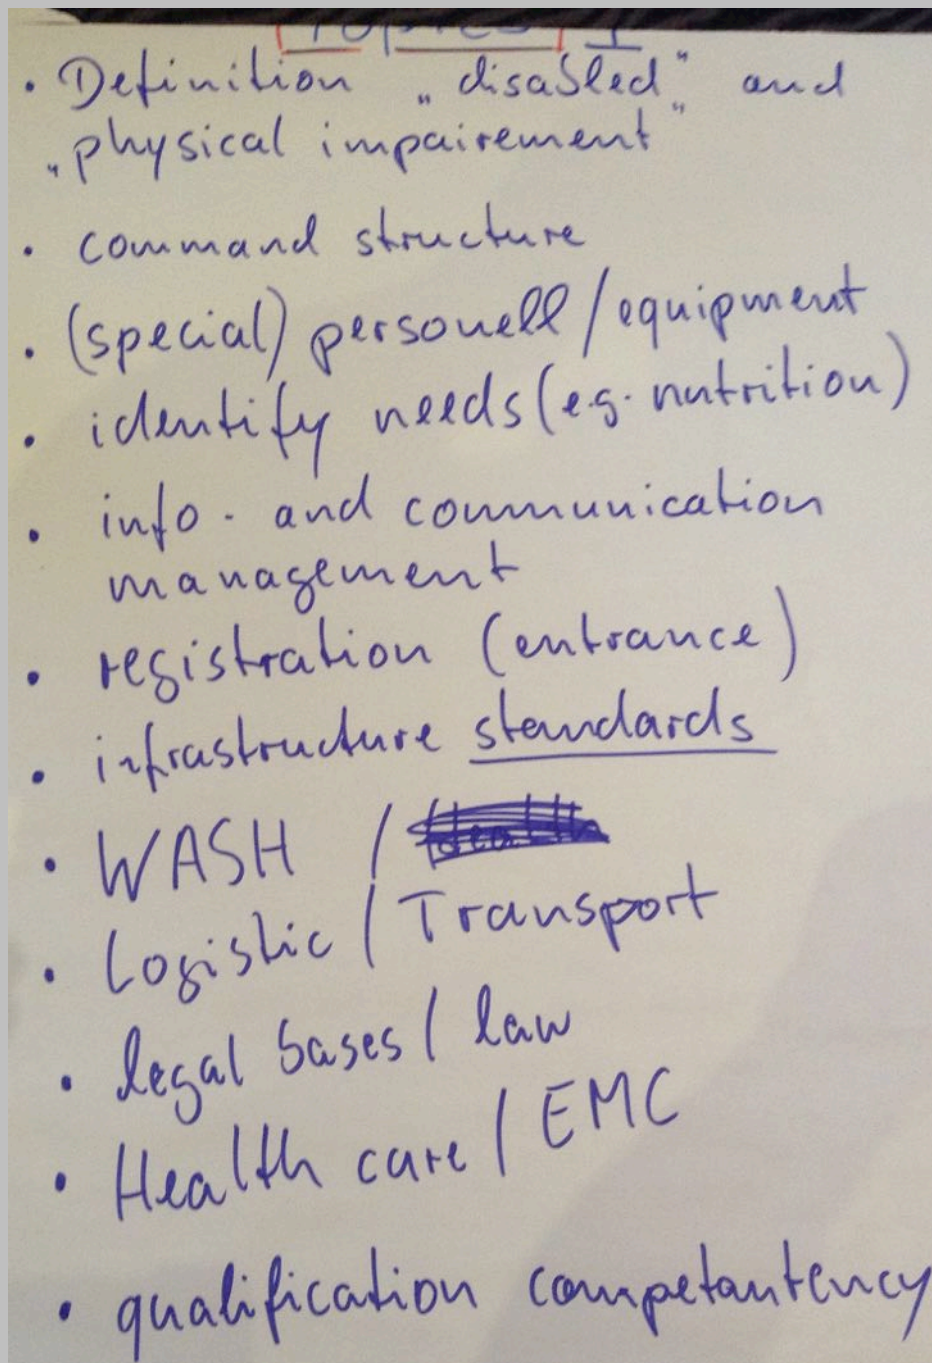 Topics I
• Definition „disabled“ and
„physical impairement“
• command structure
• (special) personell / equipment
• identify needs (e.g. nutrition)
• info - and communication
management
• registration (entrance)
• infrastructure standards
• WASH /
• Logistic / Transport
• legal bases / law
• Health care / EMC
• qualification competantency